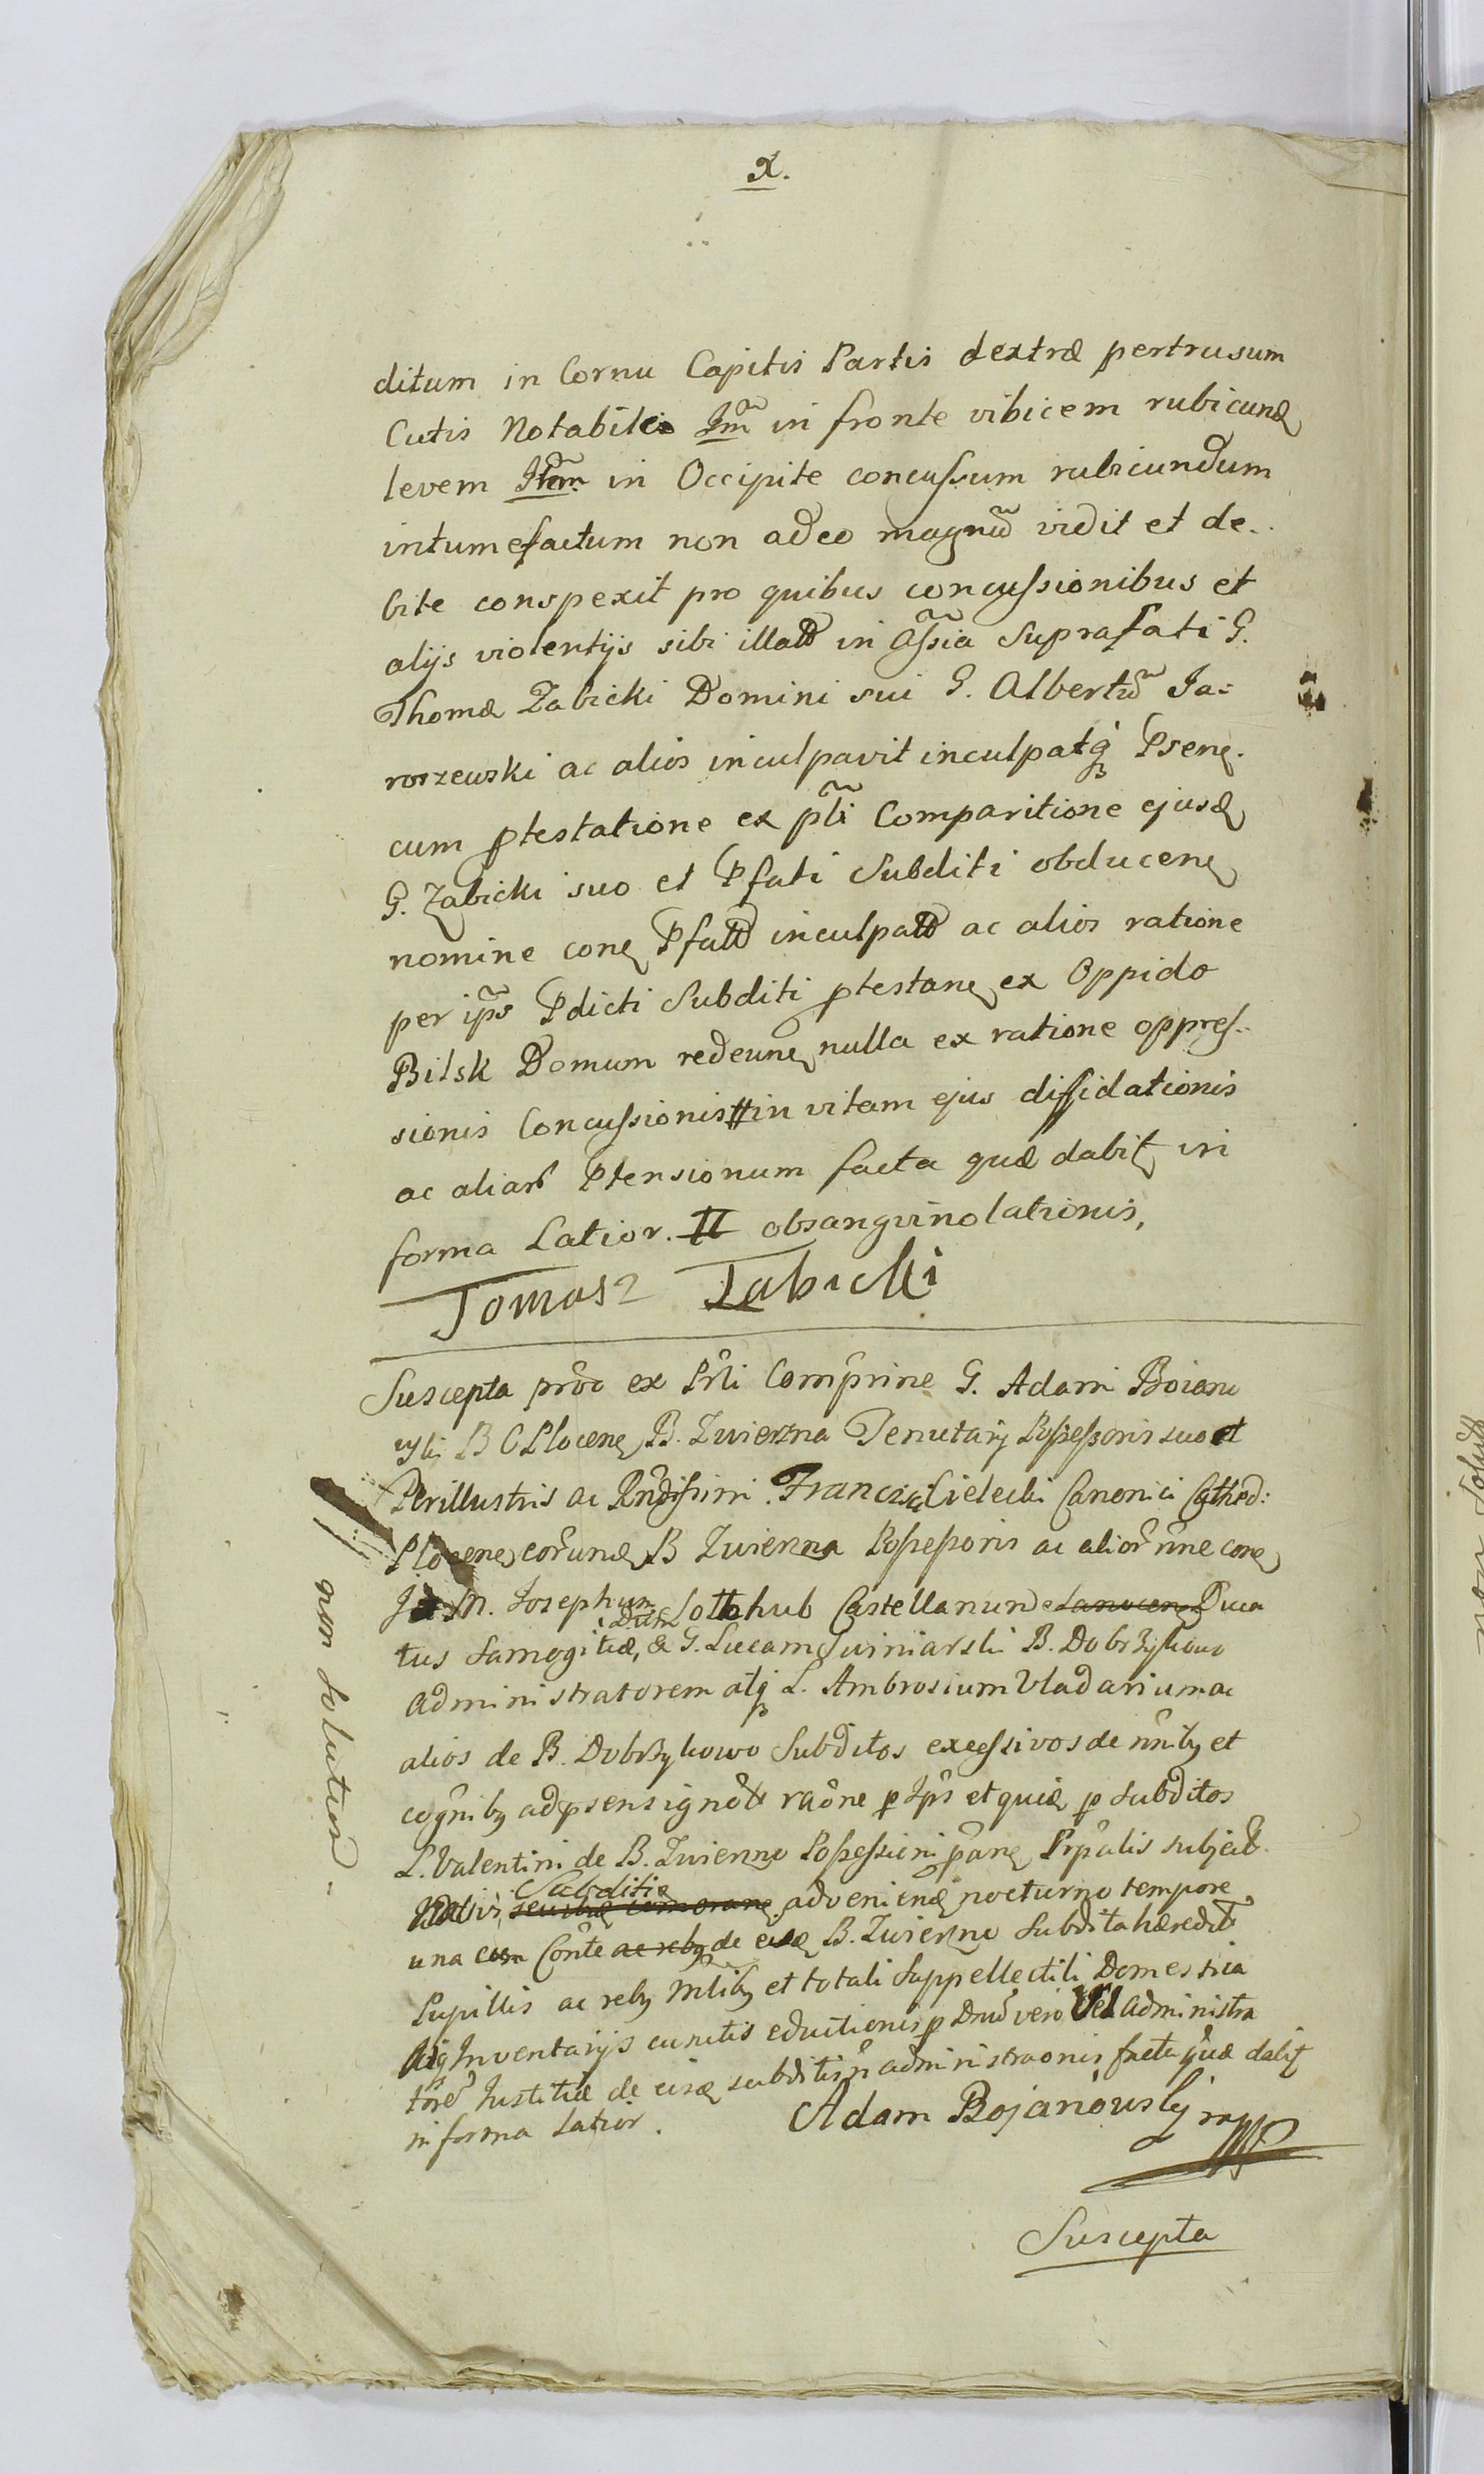 X.
ditum in Cornu Capitis Partis dextræ pertrusum
Cutis Notabile Im̃ in fronte vibicem rubicund
levem Item in Occipite concussum rubicundum
intumefactum non adeo magnũ vidit et de..
bite conspexit pro quibus concussionibus et
alijs violentijs sibi illat in Assia Suprafati G.
Thomæ Zabicki Domini sui G. Albertũ Ja:
roszewski ac alios inculpavit inculpatq Psen.
cum ptestatione ex pli Comparitione ejusd
G. Zabicki suo et Pfati Subditi obducen
nomine con Pfat inculpat ac alios ratione
per ips Pdicti Subditi ptestan ex Oppido
Bilsk Domum redeun nulla ex ratione oppres..
sionis Concussionis # in vitam ejus diffidationis
ac aliar Ptensionum facta quæ dabit in
forma Latior. # obsangvinolationis,
Tomasz Zabicki
Suscepta pro ex Prli Comprine G. Adami Boiano
wski B C Plocen B. Zwierzna Tenutarij Possessoris suo et
Perillustris ac Rndissimi Francisci Cielecki Canonici Cathed:
Plocen eorund B Possessoris ac alior nne con
M. Josephum Sollohub Castellanum Duca
tus Samogitiæ, & G. Lucam Swiniarski B. Dobrzykowo
administratorem atq L. Ambrosium Vladarium ac
alios de B. Dobrzykowo Subditos excessivos de nnib et
cognib adpsens ignot raone p Ips et quia p Subditos
L. Valentini de B. Possessioni Prpalis subject
Subditis advenien nocturno tempore
una cum Conte ac reb de ead B. Subdita hæredit
Pupillis ac reb mlib et totali Suppellectili Domestica
Atq Inventarijs cunctis eductionis p Dnũ vero Vel administra
torẽ Justitiæ de eisd subditis ñ administraonis facta quæ dabit
in forma Latior.
Adam Bojanowsky mpp
Suscepta
non solutum
non Solut